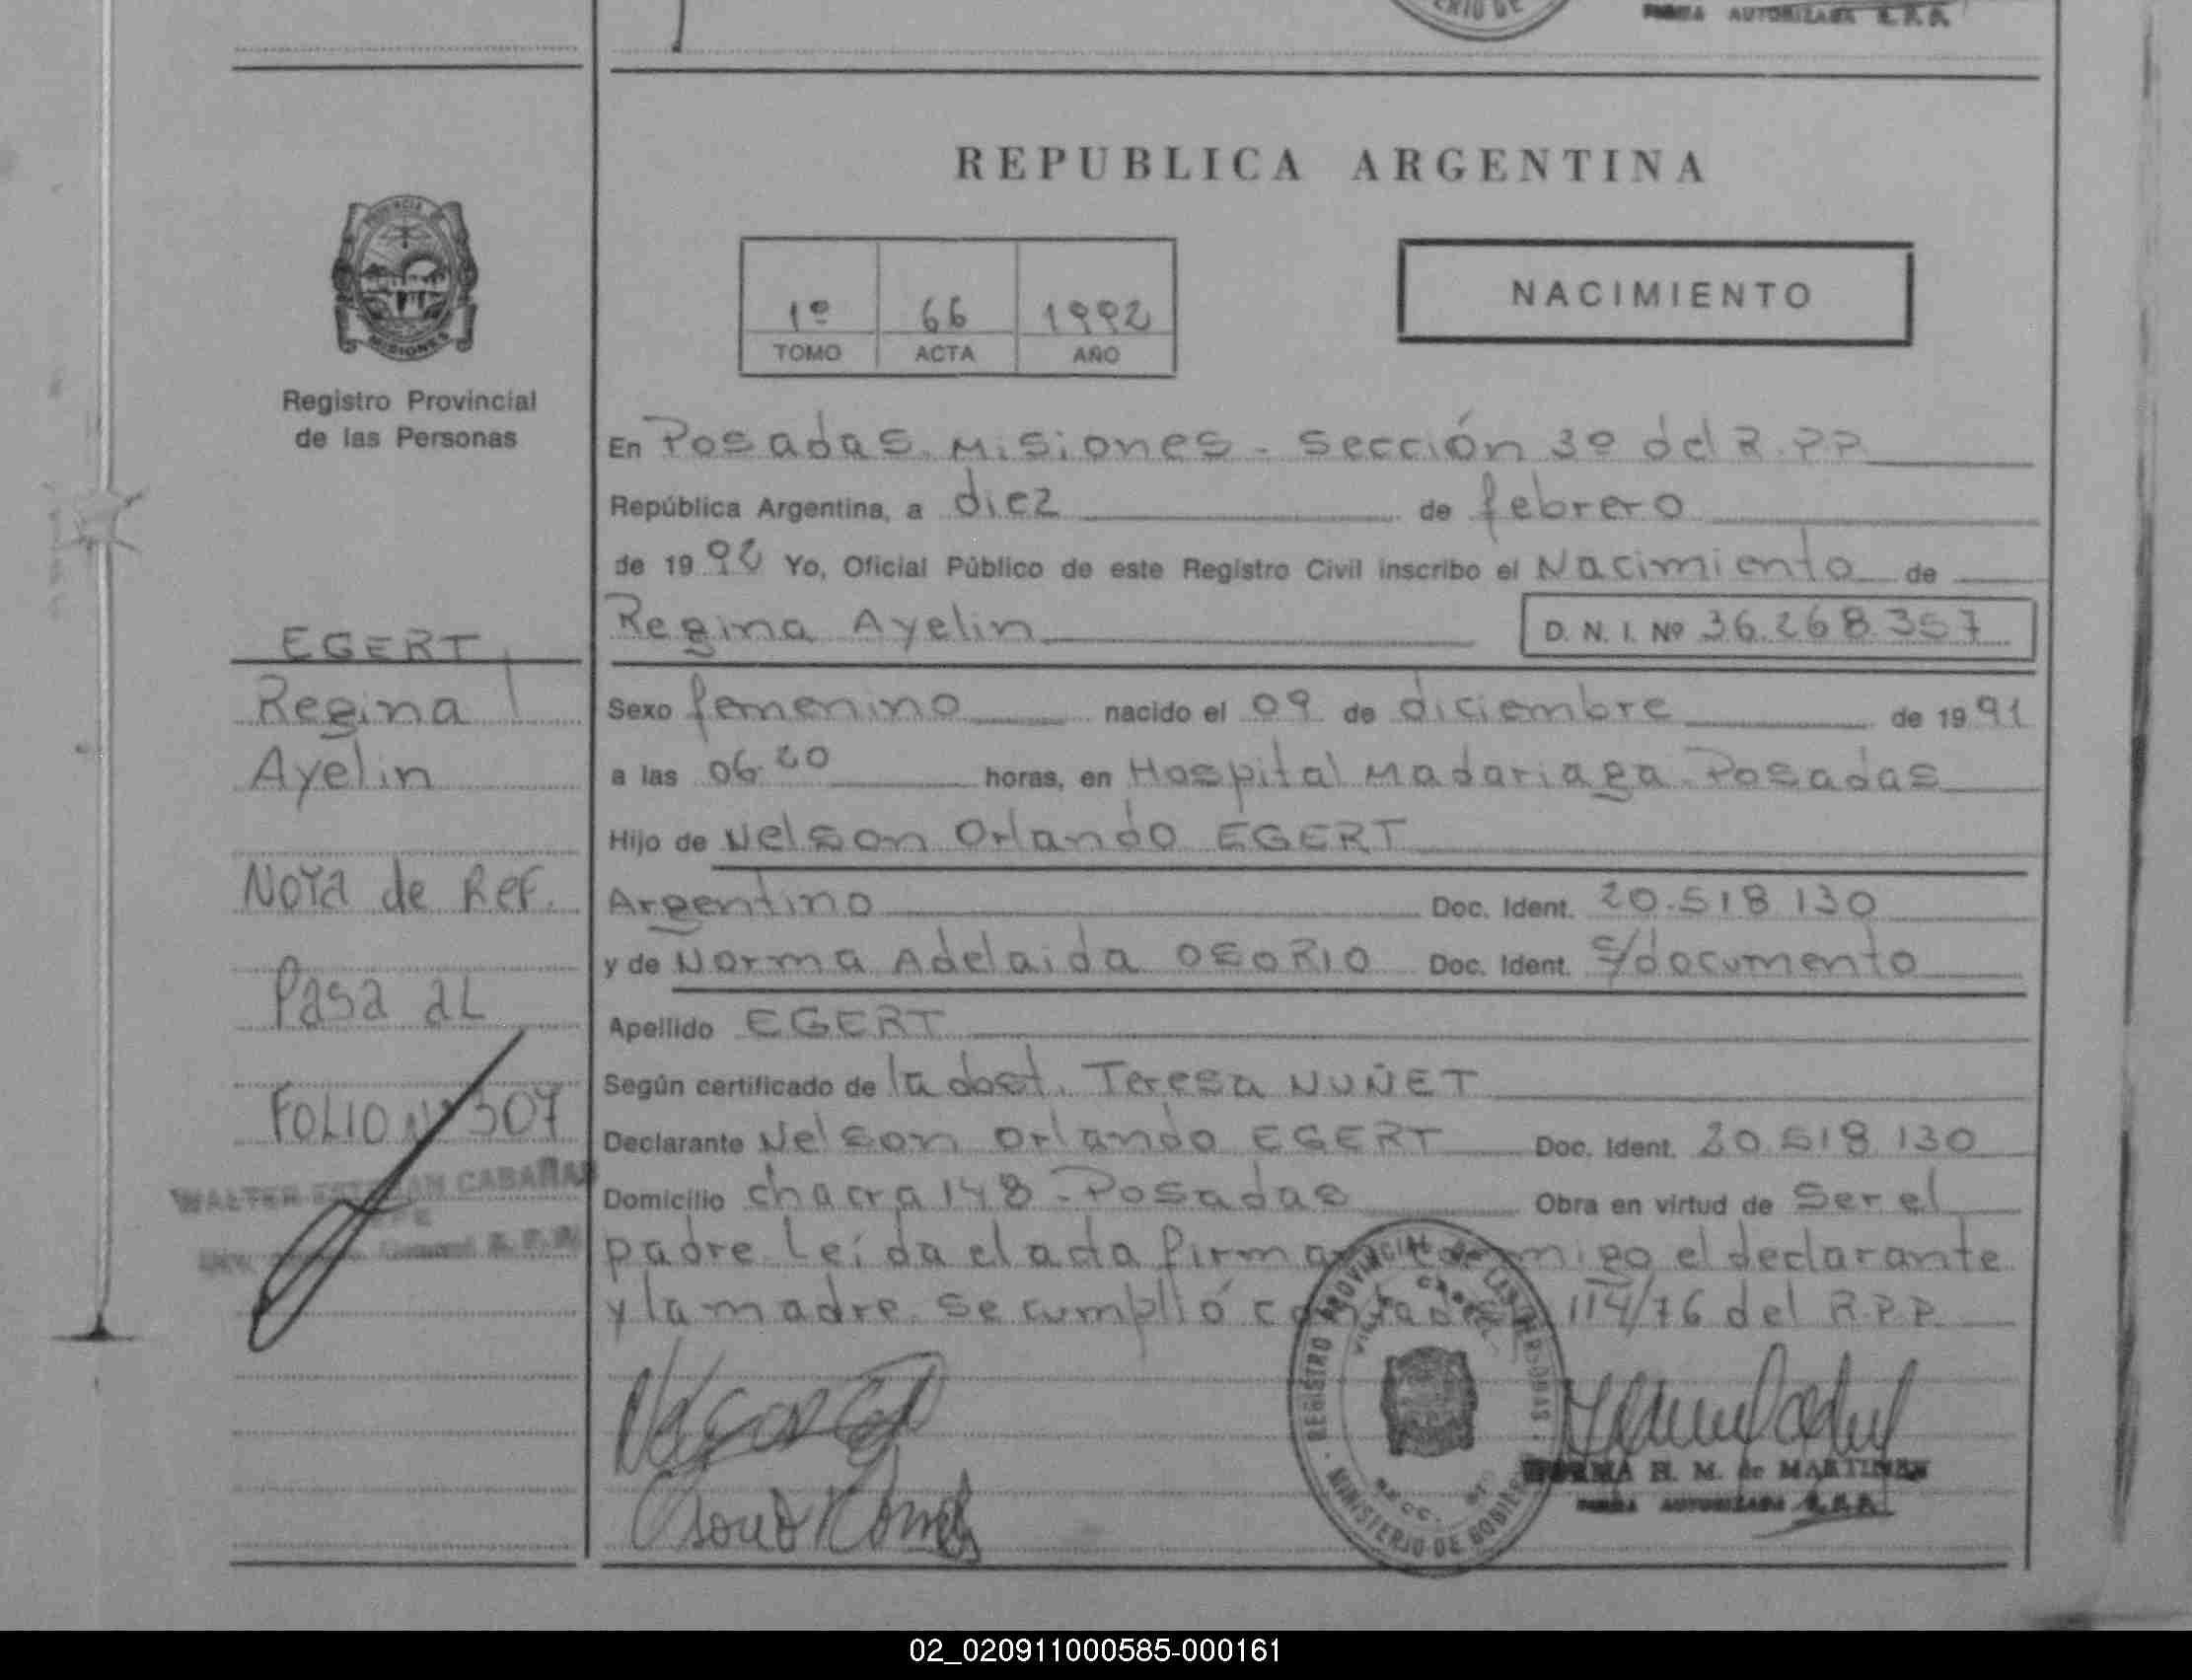 FIRMA AUTORIZADA R.P.P.
REPUBLICA ARGENTINA
PROVINCIA DE
MISIONES
Registro Provincial
de las Personas
1º 66 1992
TOMO ACTA AÑO
NACIMIENTO
En Posadas. Misiones - Sección 3º del R.P.P.
República Argentina, a diez de febrero
de 1992 Yo, Oficial Público de este Registro Civil inscribo el Nacimiento de
Regina Ayelin D. N. I. Nº 36.268.357
EGERT
Regina
Ayelin
Nota de Ref.
Pasa al
Folio Nº 307
WALTER ESTEBAN CABAÑAS
Sexo femenino nacido el 09 de diciembre de 1991
a las 06.20 horas, en Hospital Madariaga. Posadas
Hijo de Nelson Orlando EGERT
Argentino Doc. Ident. 20.518.130
y de Norma Adelaida OSORIO Doc. Ident. s/documento
Apellido EGERT
Según certificado de la obst. Teresa NUÑET
Declarante Nelson Orlando EGERT Doc. Ident. 20.518.130
Domicilio chacra 148 - Posadas Obra en virtud de Ser el
padre. Leída el acta firman conmigo el declarante
y la madre. Se cumplió con 114/76 del R.P.P.
REGISTRO PROVINCIAL DE LAS PERSONAS
MINISTERIO DE GOBIERNO
NORMA H. M. de MARTINEZ
FIRMA AUTORIZADA R.P.P.
02_020911000585-000161